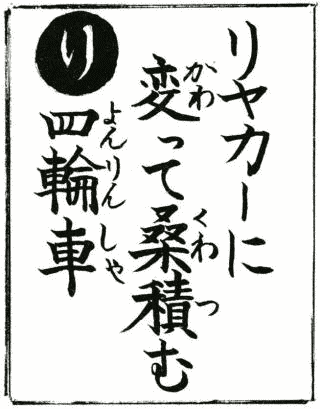 り
リヤカーに
変って桑積む
四輪車
かわ
くわ
つ
よんりんしゃ